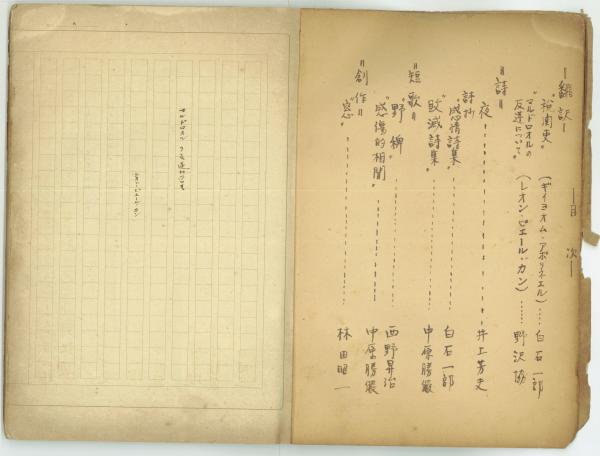 ―目次―
―飜訳―
"稲南吏"(ギイヨオム・アポリネエル)……白石一郎
"マルドロオルの反逆について"(レオン・ピエール・カン)……野沢協
"詩"
夜………井上芳史
詩抄
"感情詩集"………白石一郎
"敗滅詩集"………中原勝儼
"短歌"
"野郷"………西野昇治
"感傷的相聞"………中原勝儼
"創作"
"窓"………林田昭一
マルドロオルの反逆について
レオン・ピエール・カン